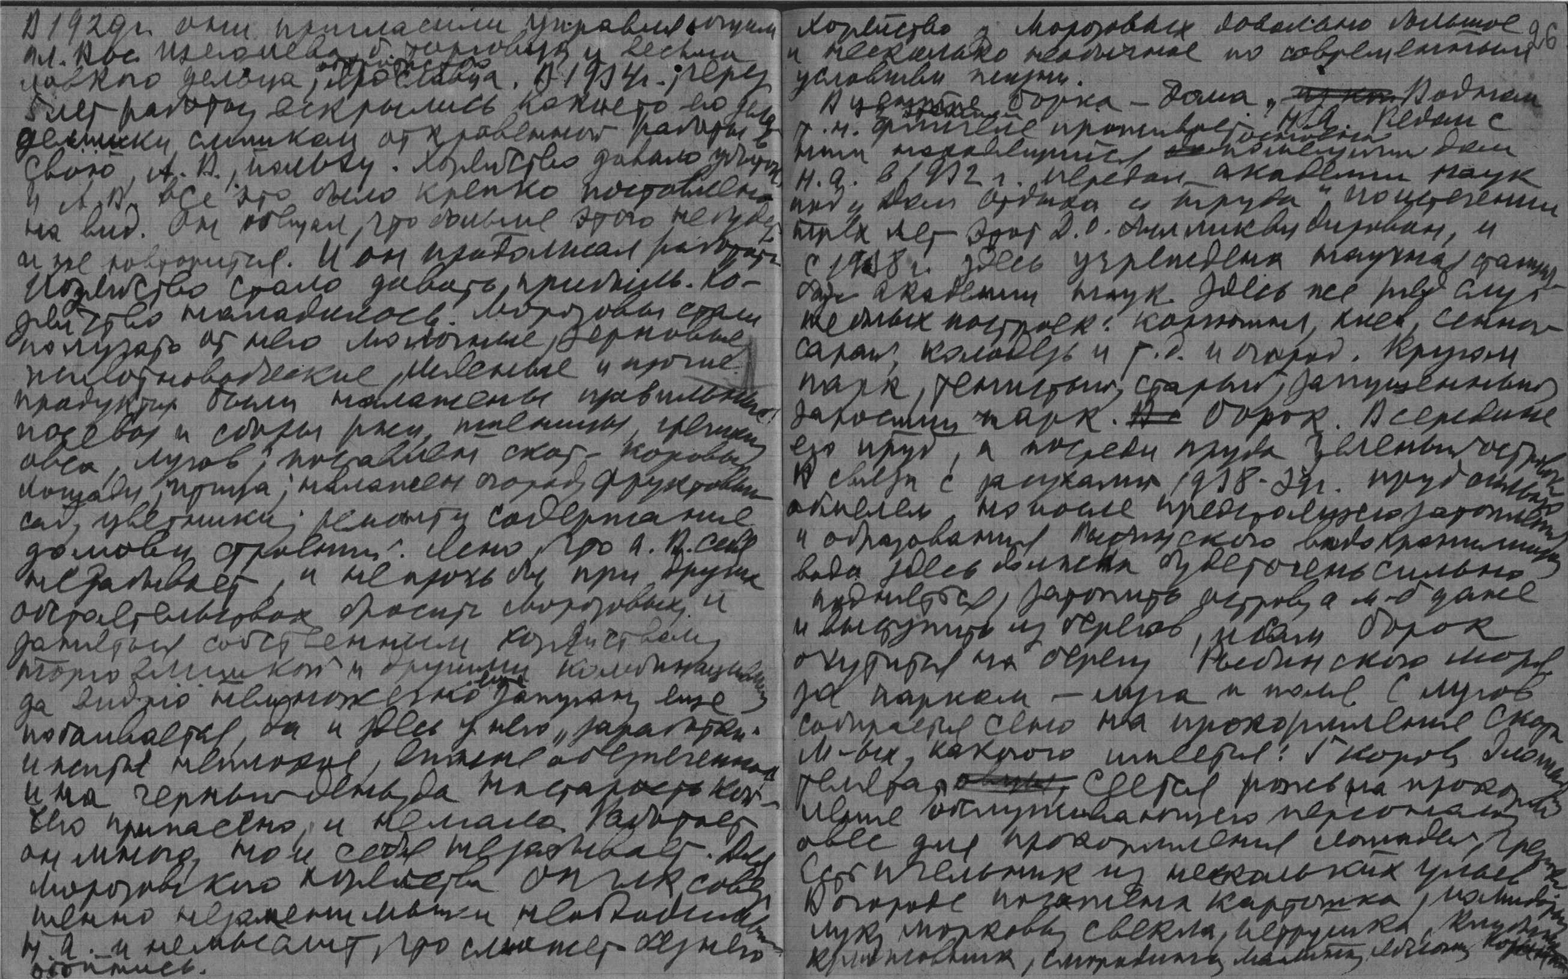 В 1929 г. они пригласили управляющим
Ал. Вас.
ловкого дельца, ярославца. В 1934 г., через
5 лет работы вскрылись какие-то его де-
лишки слишком откровенной работы в
свою, А. В., пользу. Хозяйство давало убыток
и А. В. все это было крепко поставлено
на вид. Он обещал, что больше этого не будет
и не повторится. И он продолжал работать.
Хозяйство стало давать прибыль. Хо-
зяйство наладилось. Морозовы стали
получать от него молочные, зерновые,
животноводческие, мясные и прочие
продукты. Были налажены правильные
посевы и сборы ржи, пшеницы, гречихи,
овса, лугов; поставлен скот - коровы,
лошади, птица; налажен огород, фруктовый
сад, цветники; ремонт и содержание
домовых строений. Ясно, что А. В. себя
не забывает, и не прочь бы при других
обстоятельствах бросить Морозовых и
заняться собственным хозяйством,
торговлишкой и другими комбинациями,
да видно немножечко запуган, еще
побаивается, да и здесь у него „заработки"
и житье неплохое, вполне обеспеченное
и на черный день, да на старость кое-
чего припасено, и немало. Работает
он много, но и себя не забывает. Для
морозовского хозяйства он человек совер-
шенно незаменимый и необходимый
Н. А. и не мыслит, что сможет без него
обойтись.
26
Хозяйство у Морозовых довольно большое
и несколько необычное по современным
условиям жизни.
В центре Борка - дома, в одном
т. н. флигеле проживает Н. А. Рядом с
ним находящийся помещичий дом
Н. А. в 1932 г. передал академии наук
под „Дом отдыха и труда". По истечении
трех лет этот Д. О. был ликвидирован, и
с 1938 г. здесь учреждена научная станция
академии наук. Здесь же ряд служ-
жебных построек: конюшня, хлев, сенной
сарай, колодезь и т. д. и огород. Кругом
парк, тенистый, старый, запущенный,
заросший парк. Борок. В середине
его пруд, а посреди пруда зеленый остров.
В связи с засухами 1938-39 г. пруд сильно
обмелел, но после предстоящего затопления
и образования Рыбинского водохранилища
вода здесь должна будет очень сильно
подняться, затопить остров, а м. б. даже
и выступить из берегов, и сам Борок
очутится на берегу Рыбинского моря.
За парком - луга и поля. С лугов
собирается сено на прокормление скота
М-вых, какового имеется: 5 коров, 2 лошади,
телята. Сеется рожь на прокорм-
ление обслуживающего персонала,
овес для прокормления лошадей, гречиха.
Есть пчельник из нескольких ульев.
В огороде посажены картошка,
лук, морковь, свекла, петрушка, клубника,
крыжовник, смородина, малина,